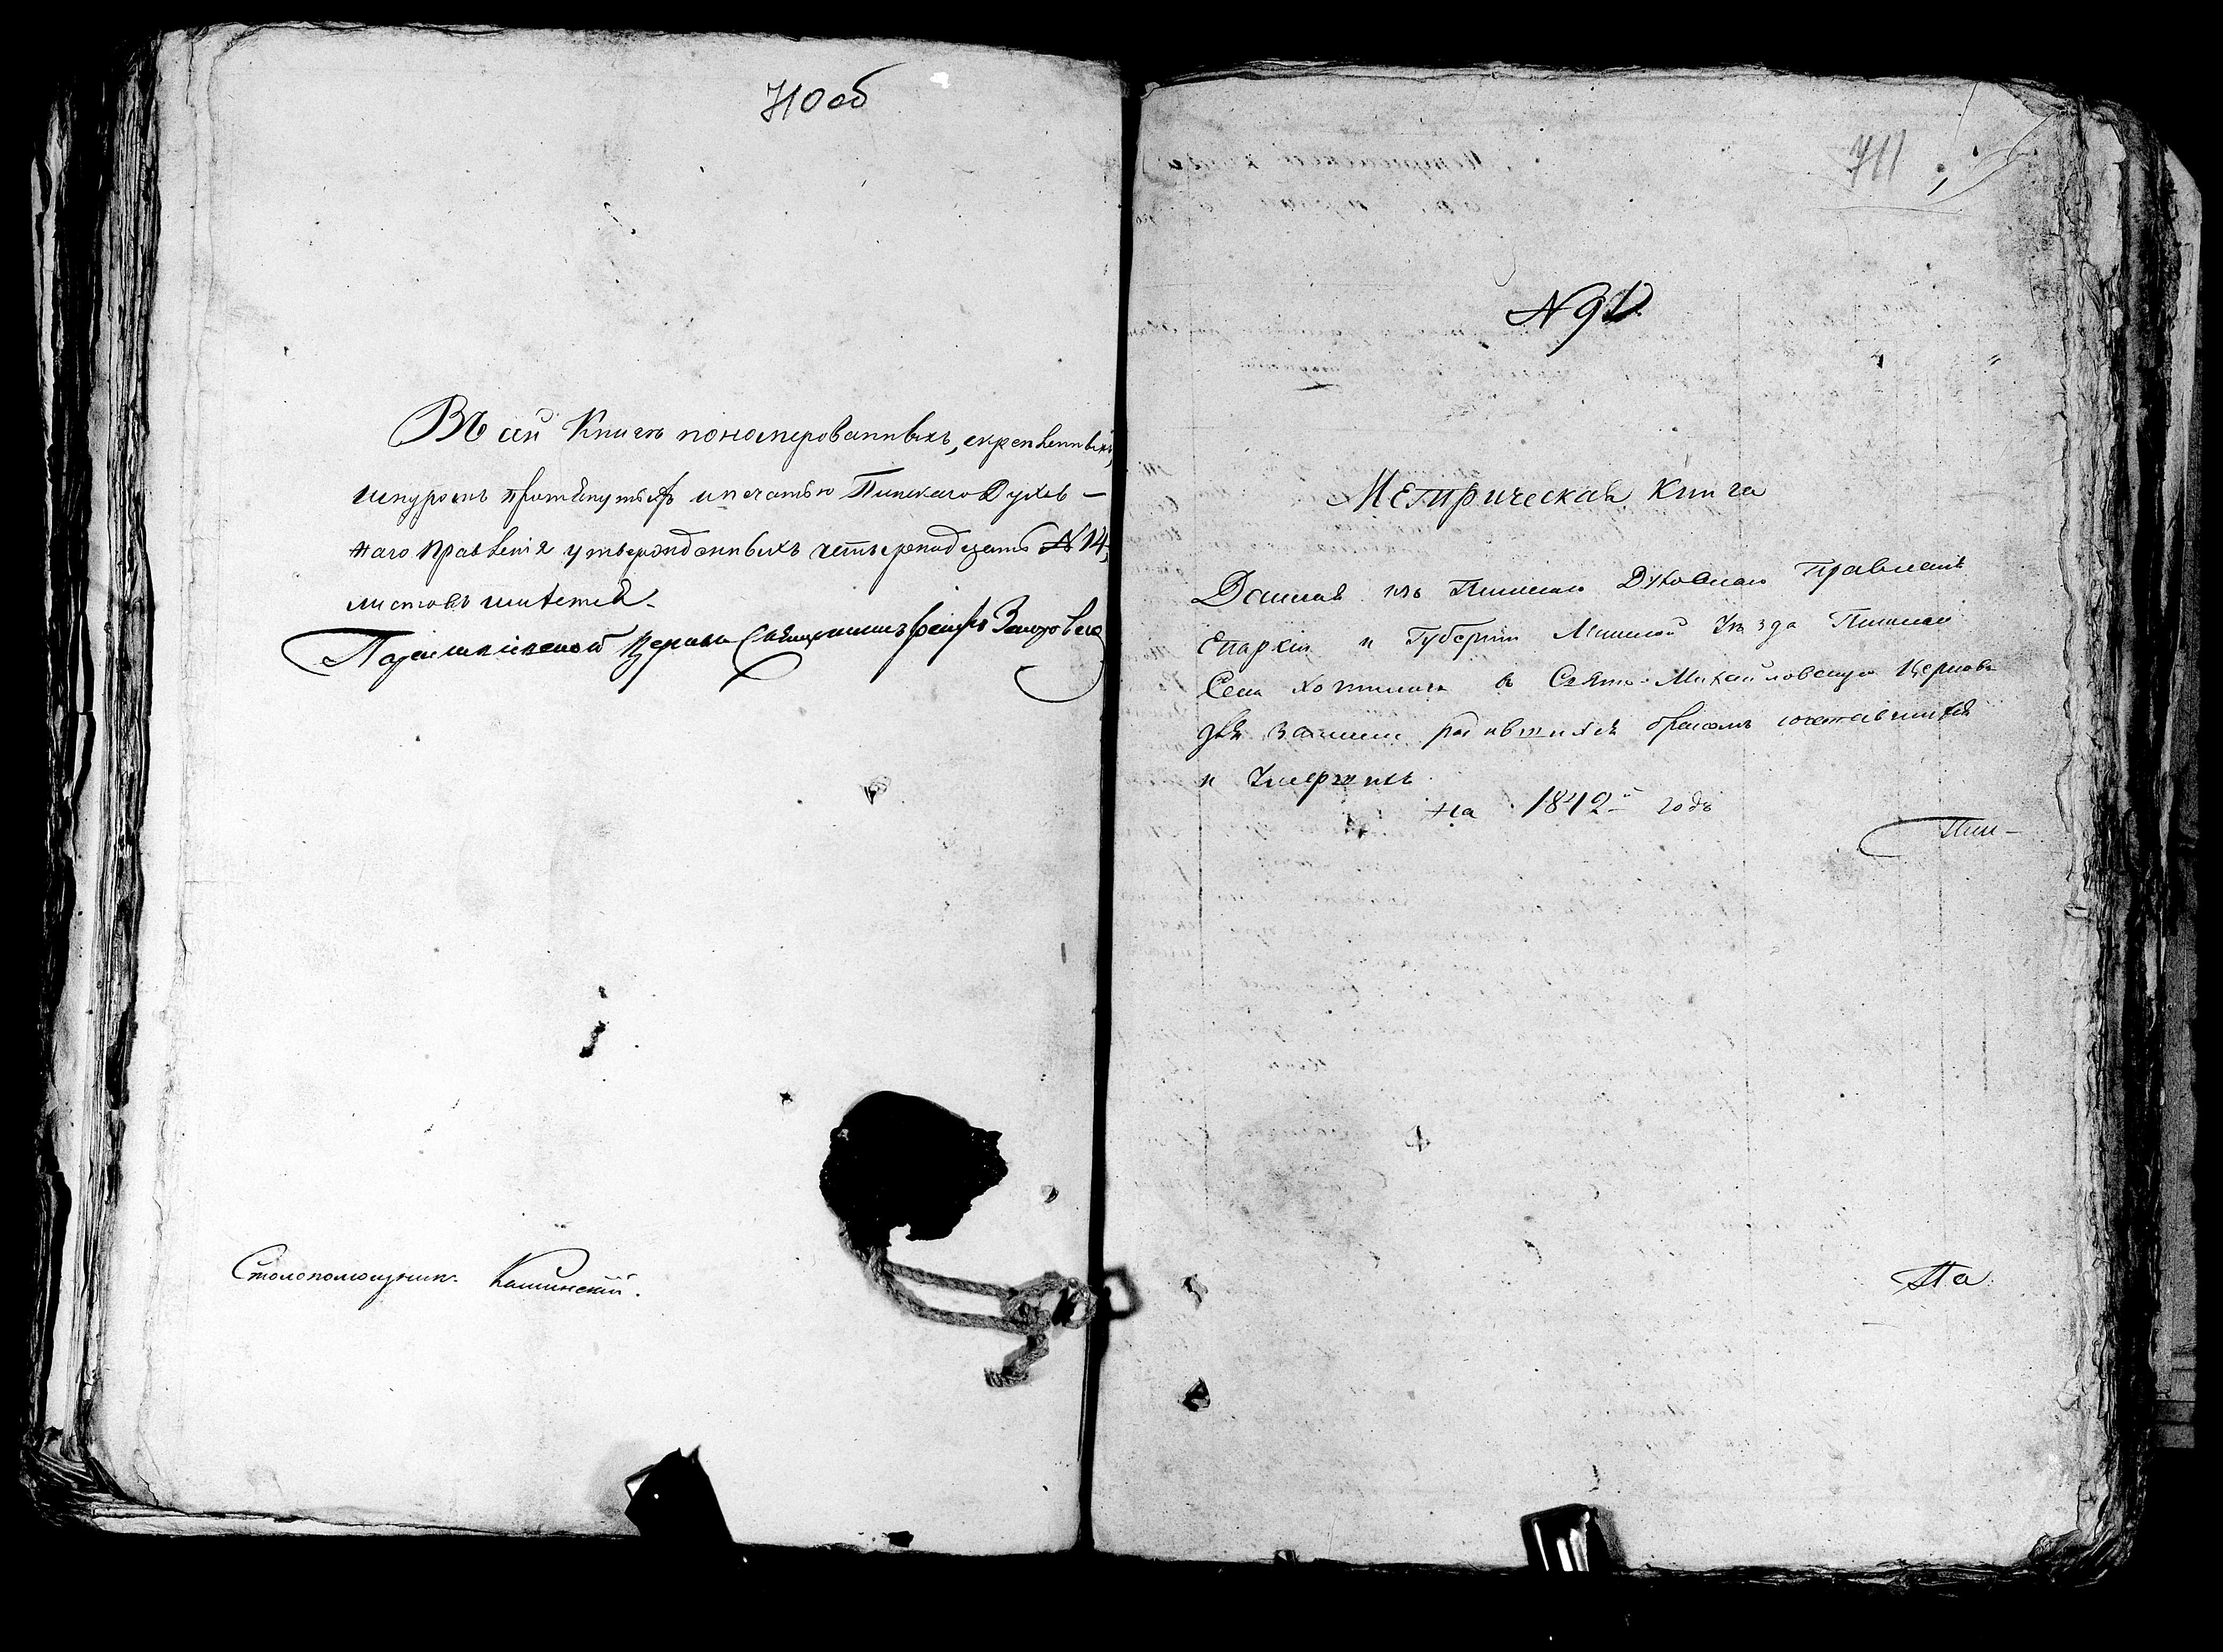 710 об
Въ сей Книгѣ пономерованныхъ, скрепленныхъ,
шнуромъ протянутыхъ и печатью Пинскаго Духов-
наго Правленія утвержденныхъ четырнадцать N 14,
листовъ имѣется.
Церкви Священникъ
Столопомощник. Каминскій.
711
N 91.
Метрическая Книга
Данная изъ Пинскаго Духовнаго Правленія
Епархіи и Губерніи Минской Уѣзда Пинскаго
Села Хотинича в Свято-Михайловскую Церковь
для записи родившихся бракомъ сочетавшихся
и Умершихъ
на 1842й годъ
Пин-